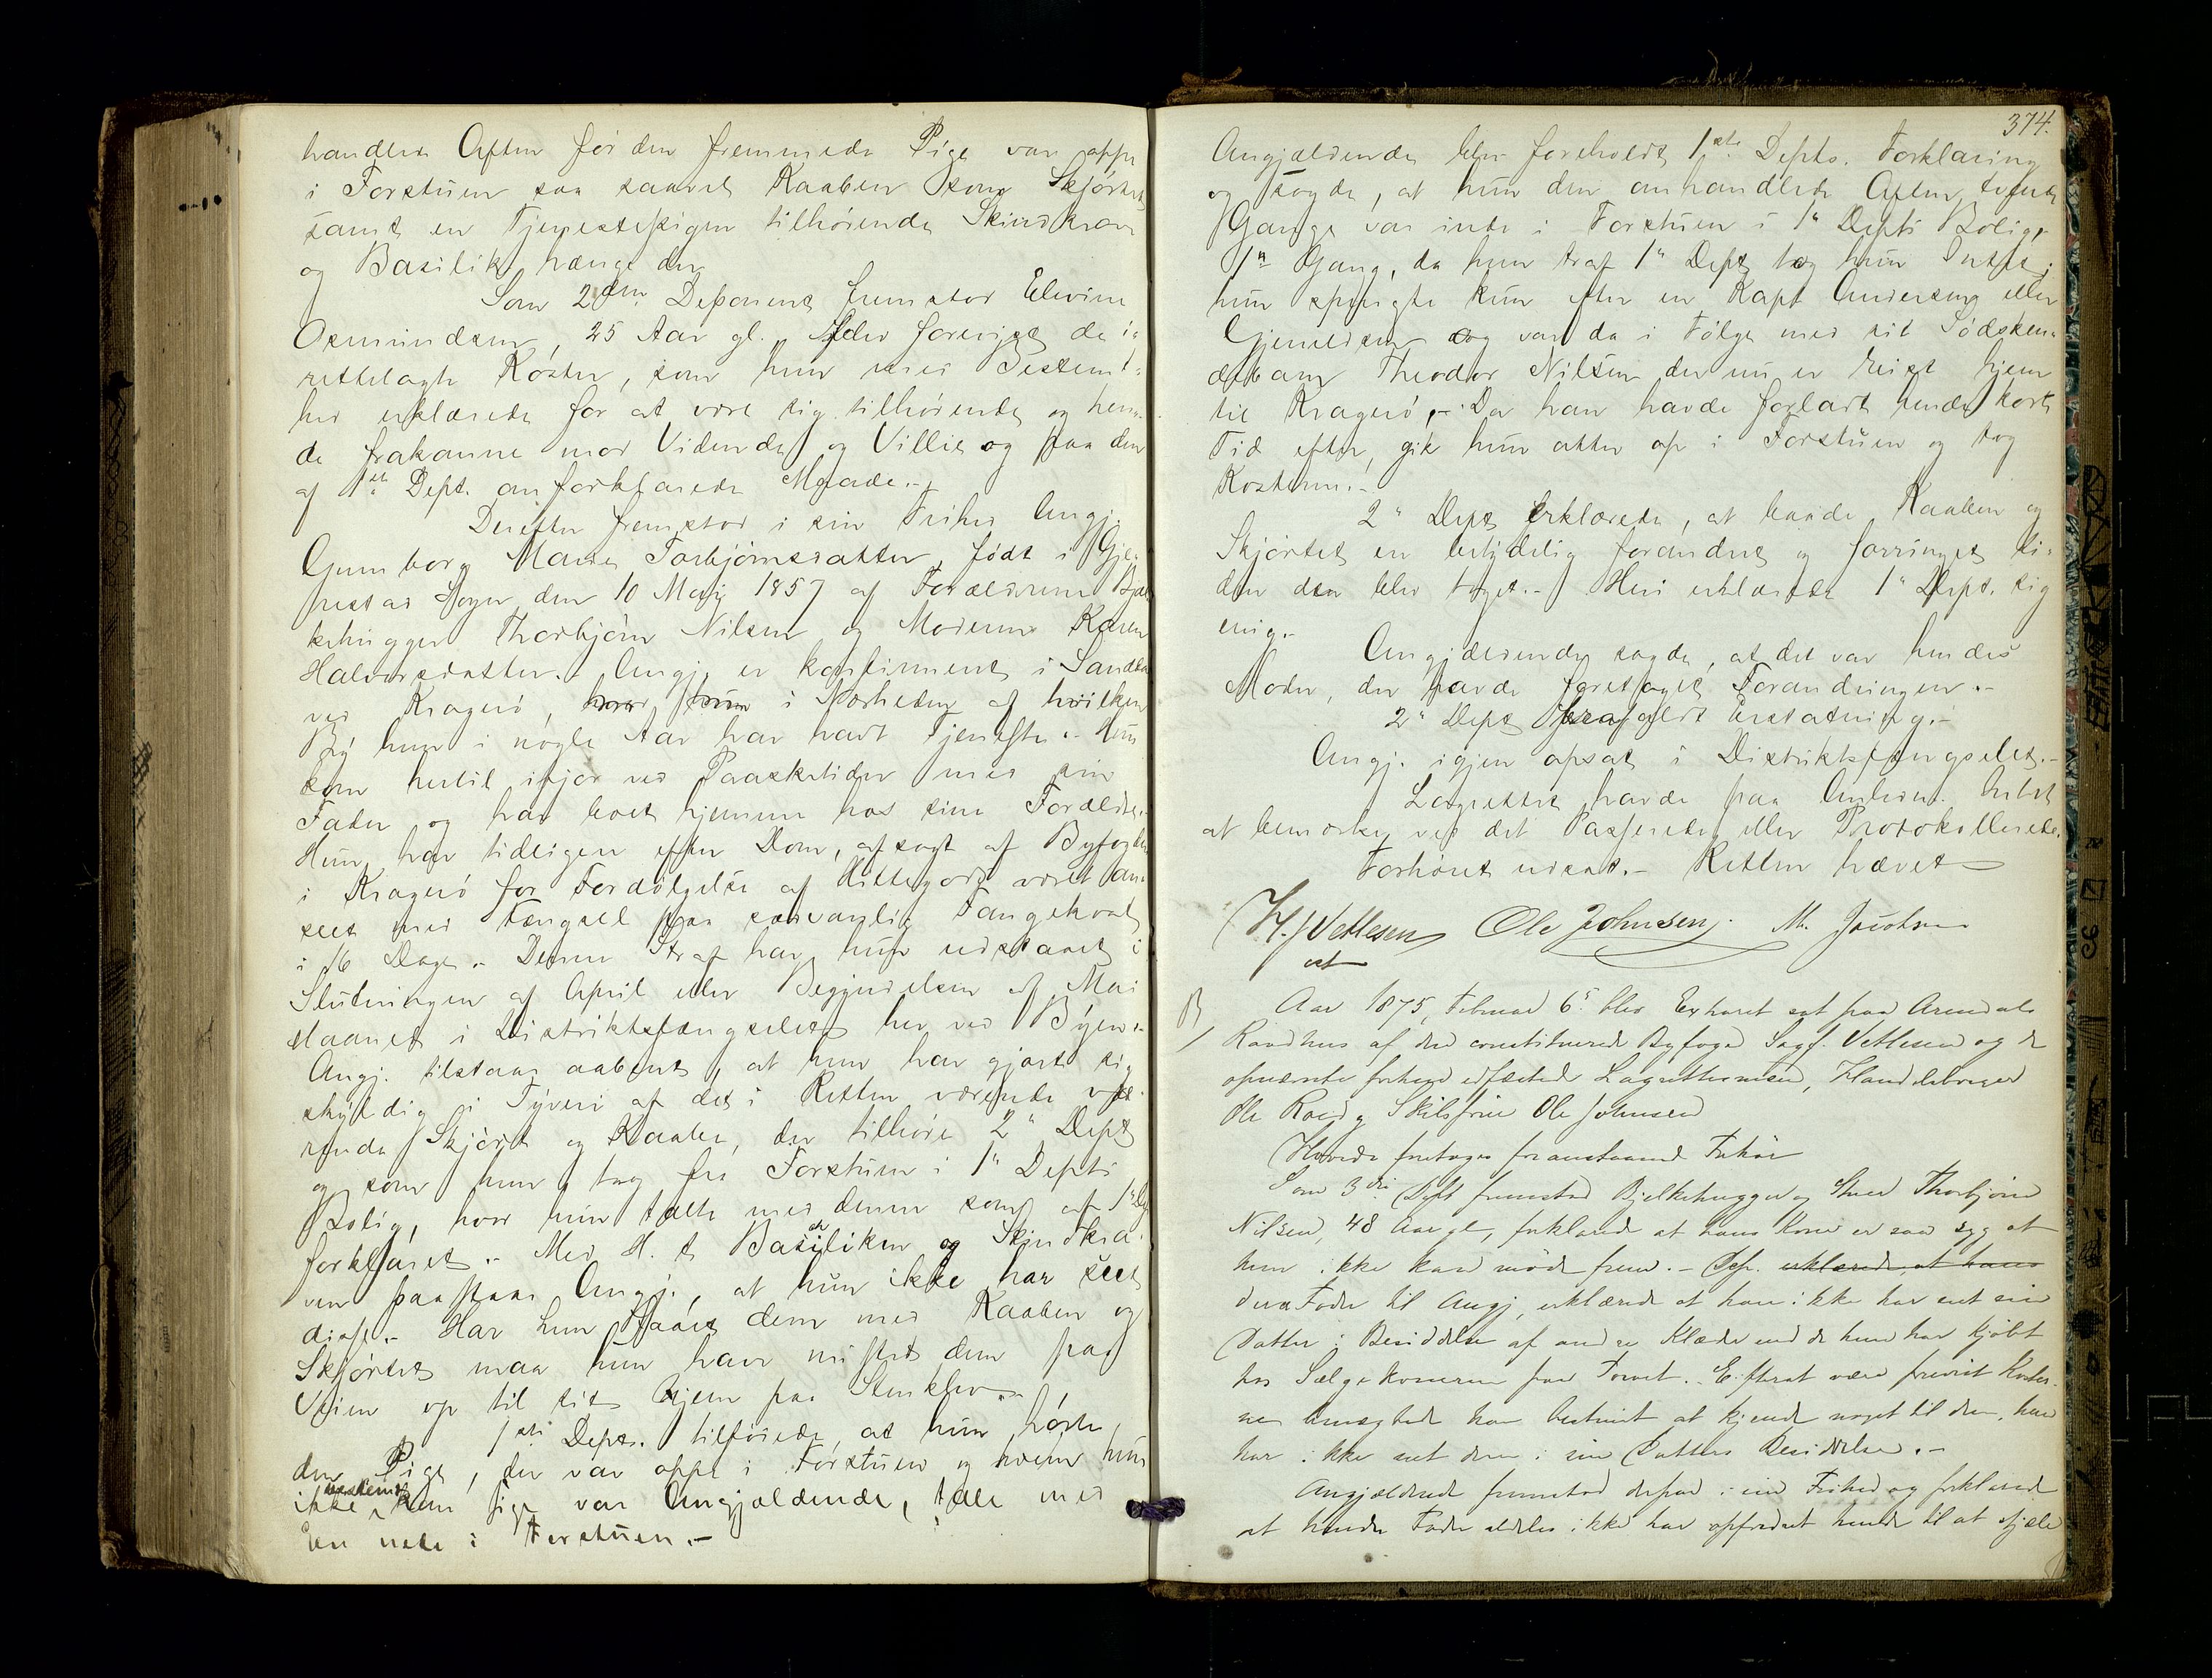 handlede Aften før den fremmede Pige var oppe
i Forstuen saa saavel Kaaben som Skjørtet
samt en Tjenestepigen tilhørende Skindkrave
og Basilik hænge der
Som 2den Deponent fremstod Elevine
Osmundsen, 25 Aar gl. Blev forevist de i
rettelagte Koster, som hun med Bestemt-
hed erklærede for at være sig tilhørende og hen-
de frakomne mod Vidende og Villie og paa den
af 1ste Dept. anforklarede Maade.-
Derefter fremstod i sin Frihed Angj.
Gunborg Marie Torbjørnsdatter, født i Gje-
restad Sogn den 10 Maj 1857 af Forældrene Bjæl
kehugger Thorbjørn Nilsen og Moderen Karen
Halvorsdatter. Angj. er konfirmeret i Sandø
ved Kragerø, hvor hun i Nærheden af hvilken
By hun i nogle Aar har havt Tjeneste.- Hun
kom hertil ifjor ved Paasketider med sin
Fader og har boet hjemme hos sine Forældre.
Hun har tidligere efter Dom, afsagt af Byfogden
i Kragerø for Fordølgelse af Hittegods været an-
seet med Fængsel paa sædvanlig Fangekost
i 16 Dage.- Denne Straf har hun udstaaet i
Slutningen af April eller Begyndelsen af Mai
Maaned i Distriktsfængselet her ved Byen.-
Angj. tilstaar aabent, at hun har gjort sig
skyldig i Tyveri af det i Retten værende
rende Skjørt og Kaabe, der tilhøre 2" Dept
og som hun tog fra Forstuen i 1" Depts
Bolig, hvor hun talte med denne som af 1" Dept
forklaret.- Med H. t. Basiliken og Skindkra-
ven paastaar Angj., at hun ikke har seet
disse.- Har hun faaet dem med Kaaben og
Skjørtet maa hun have mistet dem paa
Veien op til sit Hjem paa
1ste Dept. tilføiede, at hun hørte
den Pige, der var oppe i Forstuen og hvem hun
ikke bestemt kan sige var Angjældende, tale med
En nede i Forstuen.-
374.
Angjældende blev foreholdt 1ste Depts. Forklaring
og sagde, at hun den omhandlede Aften tvende
Gange var inde i Forstuen i 1" Depts Bolig,
1" Gang, da hun traf 1" Dept tog hun Intet;
hun spurgte kun efter en Kapt Andersen eller
Gjeruldsen og var da i Følge med sit Sødsken-
debarn Theodor Nilsen der nu er reist hjem
til Kragerø,- Da han havde forladt hende kort
Tid efter, gik hun atter op i Forstuen og tog
Kosterne.-
2" Dept erklærede, at baade Kaaben og
Skjørtet er betydelig forandret og forringet si-
den den blev taget.- Heri erklærede 1" Dept. sig
enig.-
Angjældende sagde, at det var hendes
Moder, der havde foretaget Forandringen.-
2" Dept frafaldt Erstatning.-
Angj. igjen opsat i Distriktsfængselet.-
Lagrettet havde paa Anledn. Intet
at bemærke ved det Passerede eller Protokollerede.
Forhøret udsat.- Retten hævet
H. J Vetlesen Ole Johnsen. M. Jacobsen
cst
B Aar 1875, Februar 6t blev Extraret sat paa Arendals
Raadhus af den constituerede Byfoged Sagf. Vetlesen og de
opnævnte forhen edfæstede Lagrettesmænd, Handelsborger
Ole Roed og Skibsfører Ole Johnsen
Hvorda foretoges fremstaaende Forhør
Som 3die Dept fremstod Bjelkehugger og Thorbjørn
Nilsen, 48 Aar gl, forklarede at hans Kone er saa syg at
hun ikke kan møde frem.- Dep. erklærede, at hans
der er Fader til Angj, erklærede at han ikke har seet sin
Datter i Besiddelse af andre Klæder end de hun har kjøbt
hos Sælgekonerne paa Torvet.- Efterat være forevist Koster-
ne benægtede han bestemt at kjende noget til dem, han
har ikke seet dem i sin Datters Besiddelse.-
Angjældende fremstod derpaa i sin Frihed og forklarede
at hendes Fader aldeles ikke har opfordret hende til at stjæle